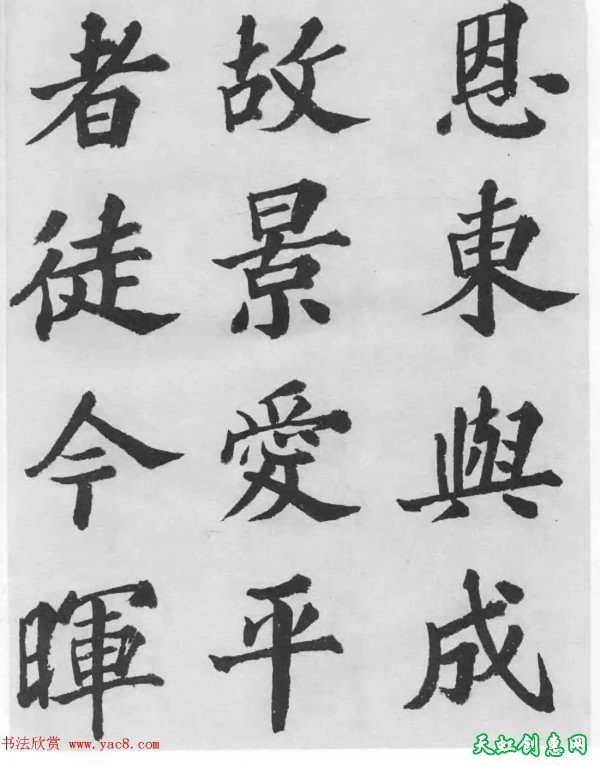 恩東與成
故景愛平
者徒今暉
书法欣赏 www.yac8.com
天虹创意网